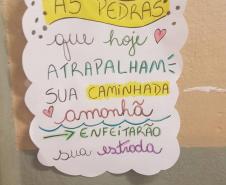 AS PEDRAS
que hoje
ATRAPALHAM
SUA CAMINHADA
amanhã
ENFEITARÃO
sua estrada